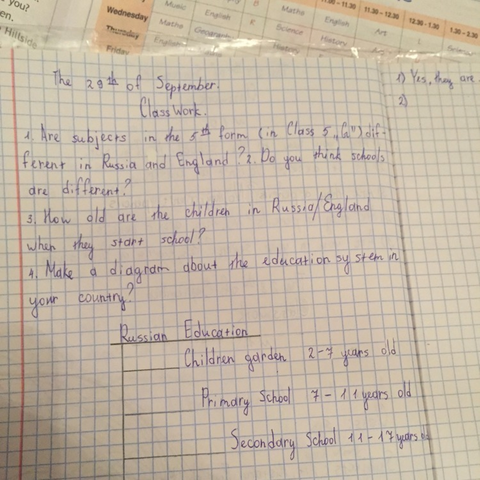 you?
en.
Hillside
Wednesday
Thursday
Friday
Music
Maths
English
English
Geography
Maths
Science
History
English
History
Art
11.00 – 11.30
11.30 – 12.30
12.30 - 1.30
1.30 - 2.30
The 29th of September.
Class Work.
1. Are subjects in the 5th form (in Class 5 „G") dif-
ferent in Russia and England? 2. Do you think schools
are different?
3. How old are the children in Russia/England
when they start school?
4. Make a diagram about the education system in
your country?
Russian Education
Children garden 2-7 years old
Primary School 7 - 11 years old
Secondary School 11-17 years old
1) Yes, they are.
2)